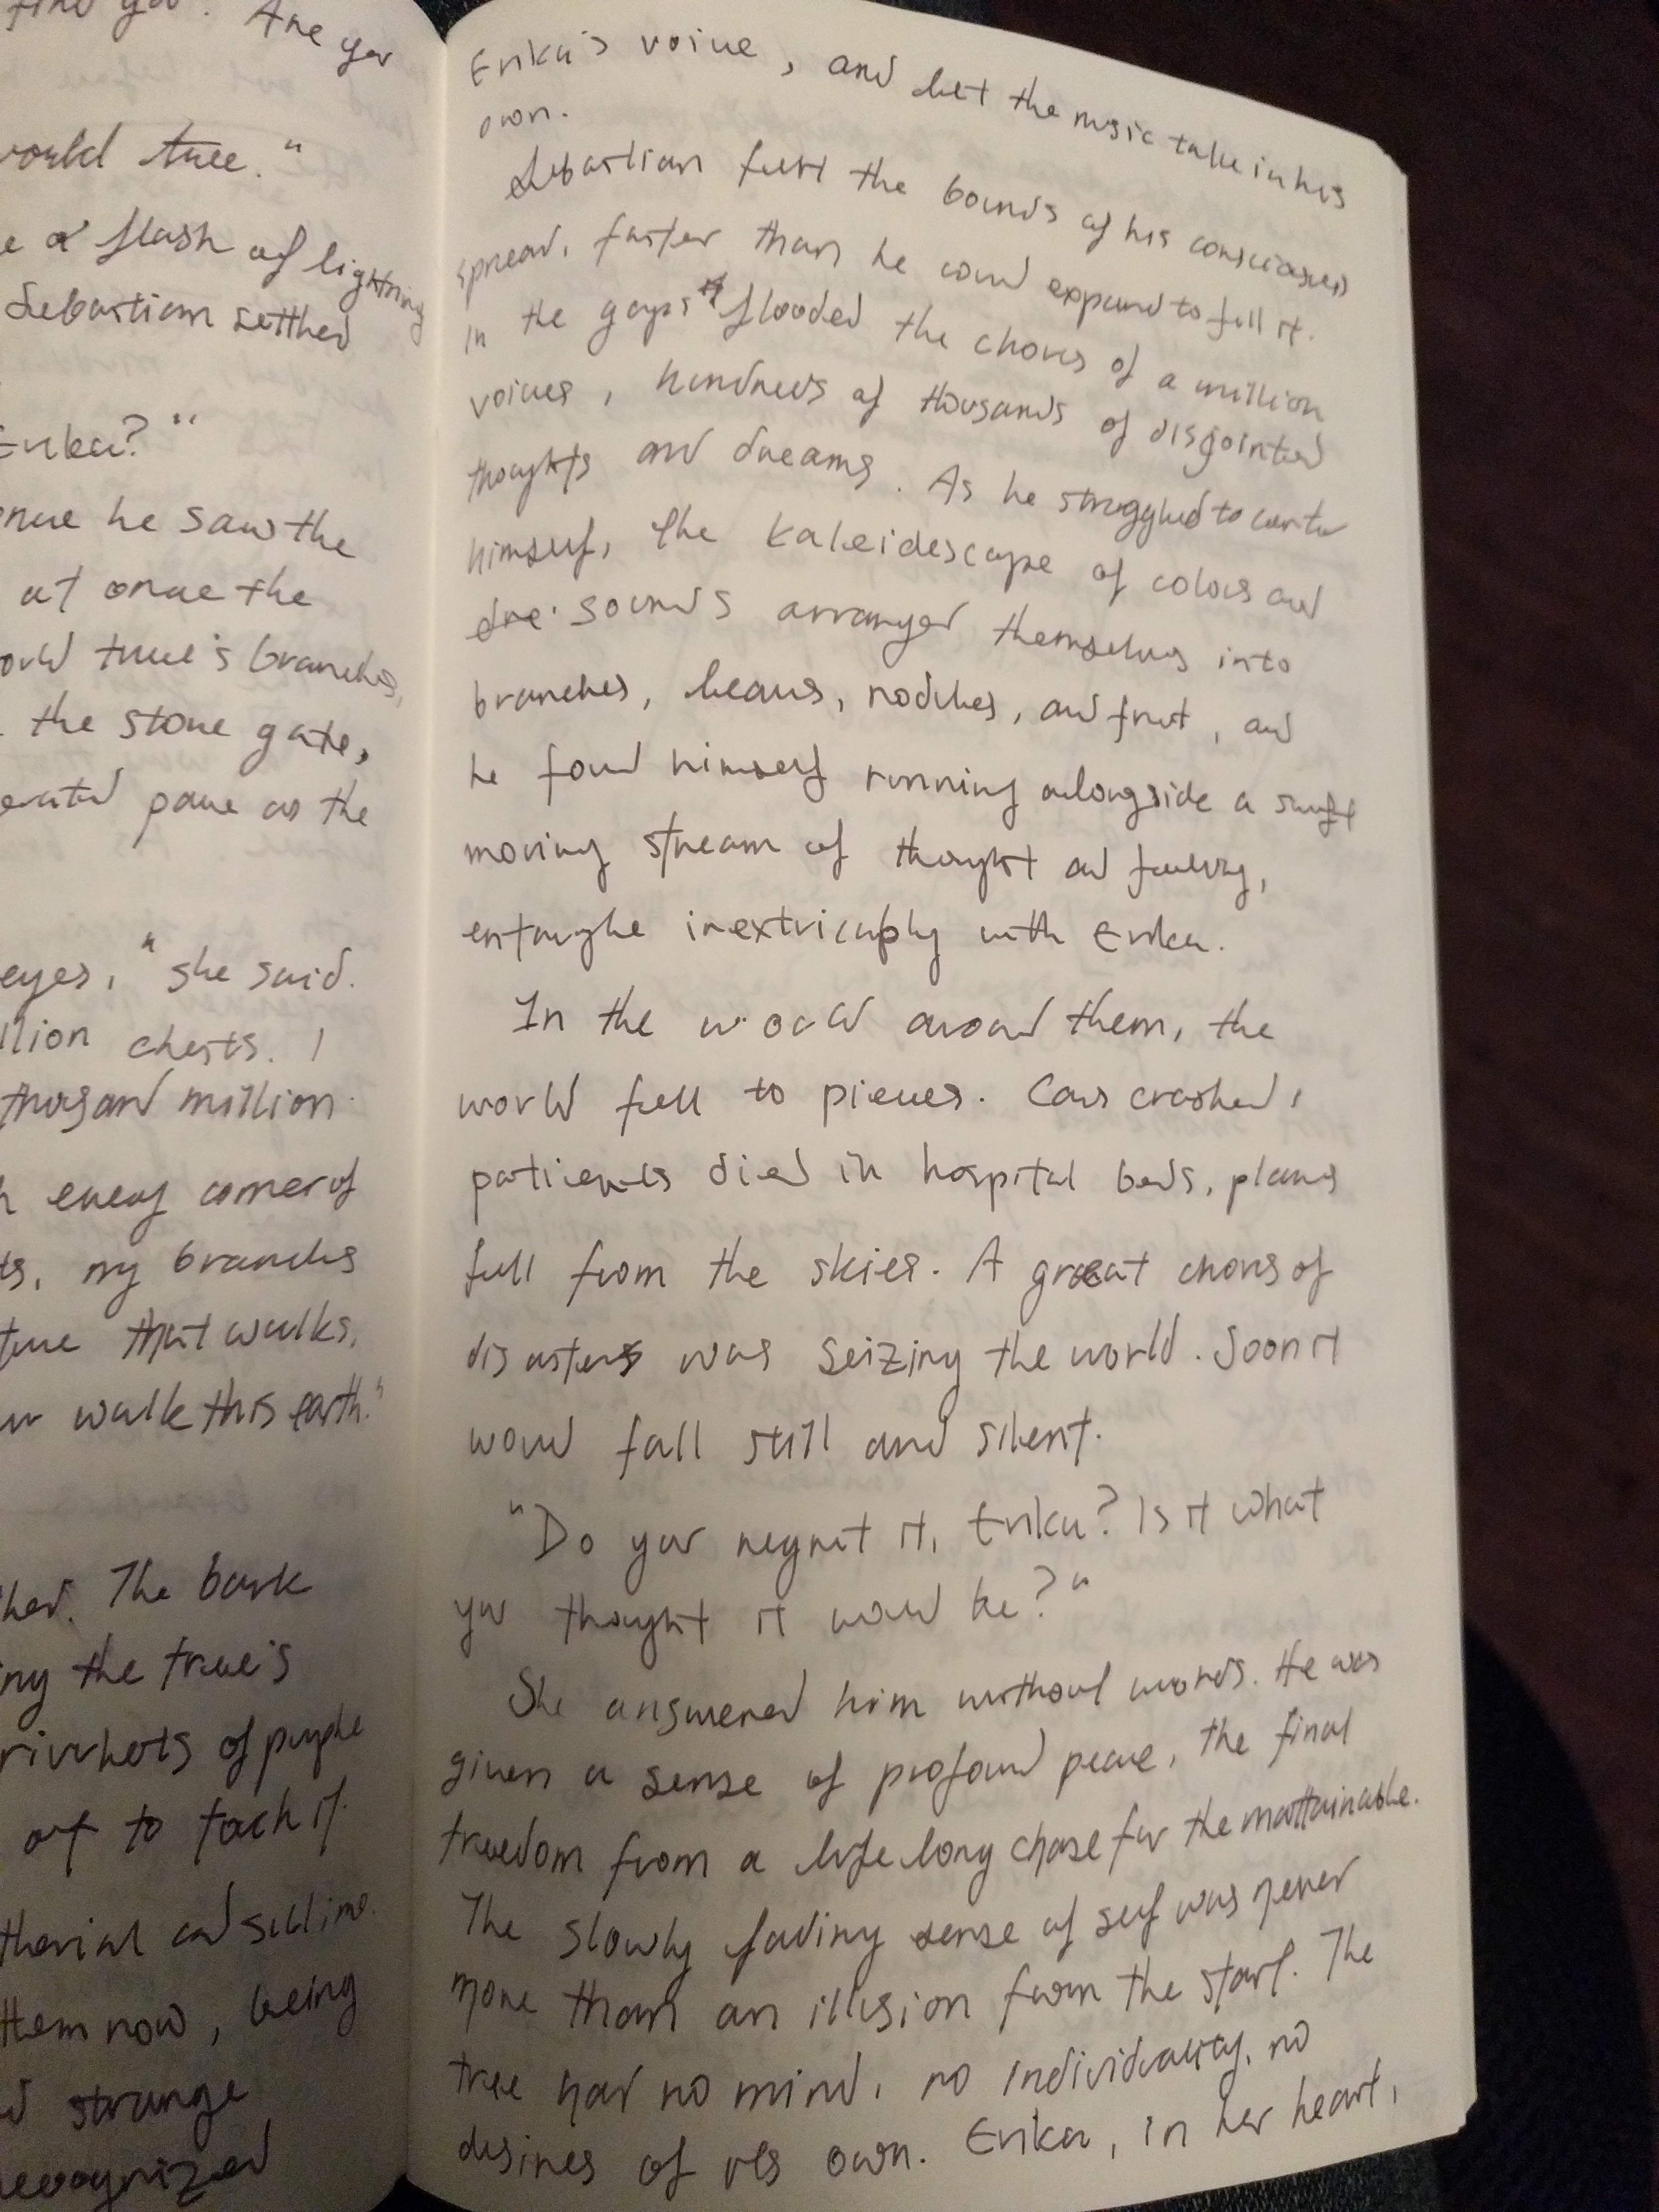 find you. Are you
world tree."
e a flash of lightning
Sebastian settled
Erika?"
once he saw the
at once the
world tree's branches,
the stone gate,
pane as the
eyes," she said.
llion chests. I
thousand million
h every corner of
ts, my branches
ture that walks.
walk this earth."
her. The bark
ing the tree's
rivulets of purple
out to touch it.
therial and sublime.
them now, being
d strange
recognized
Erika's voice, and let the music take in his
own.
Sebastian felt the bounds of his consciousness
spread, faster than he could expand to fill it.
In the gaps flooded the chorus of a million
voices, hundreds of thousands of disjointed
thoughts and dreams. As he struggled to center
himself, the kaleidescope of colors and
dre sounds arranged themselves into
branches, leaves, nodules, and fruit, and
he found himself running alongside a swift
moving stream of thought and feeling,
entangle inextricably with Erika.
In the world around them, the
world fell to pieces. Cars crashed,
patients died in hospital beds, planes
fell from the skies. A great chorus of
disasters was seizing the world. Soon it
would fall still and silent.
"Do you regret it, Erika? Is it what
you thought it would be?"
She answered him without words. He was
given a sense of profound peace, the final
freedom from a life long chase for the unattainable.
The slowly fading sense of self was never
more than an illusion from the start. The
tree had no mind, no individuality, no
desires of its own. Erika, in her heart,